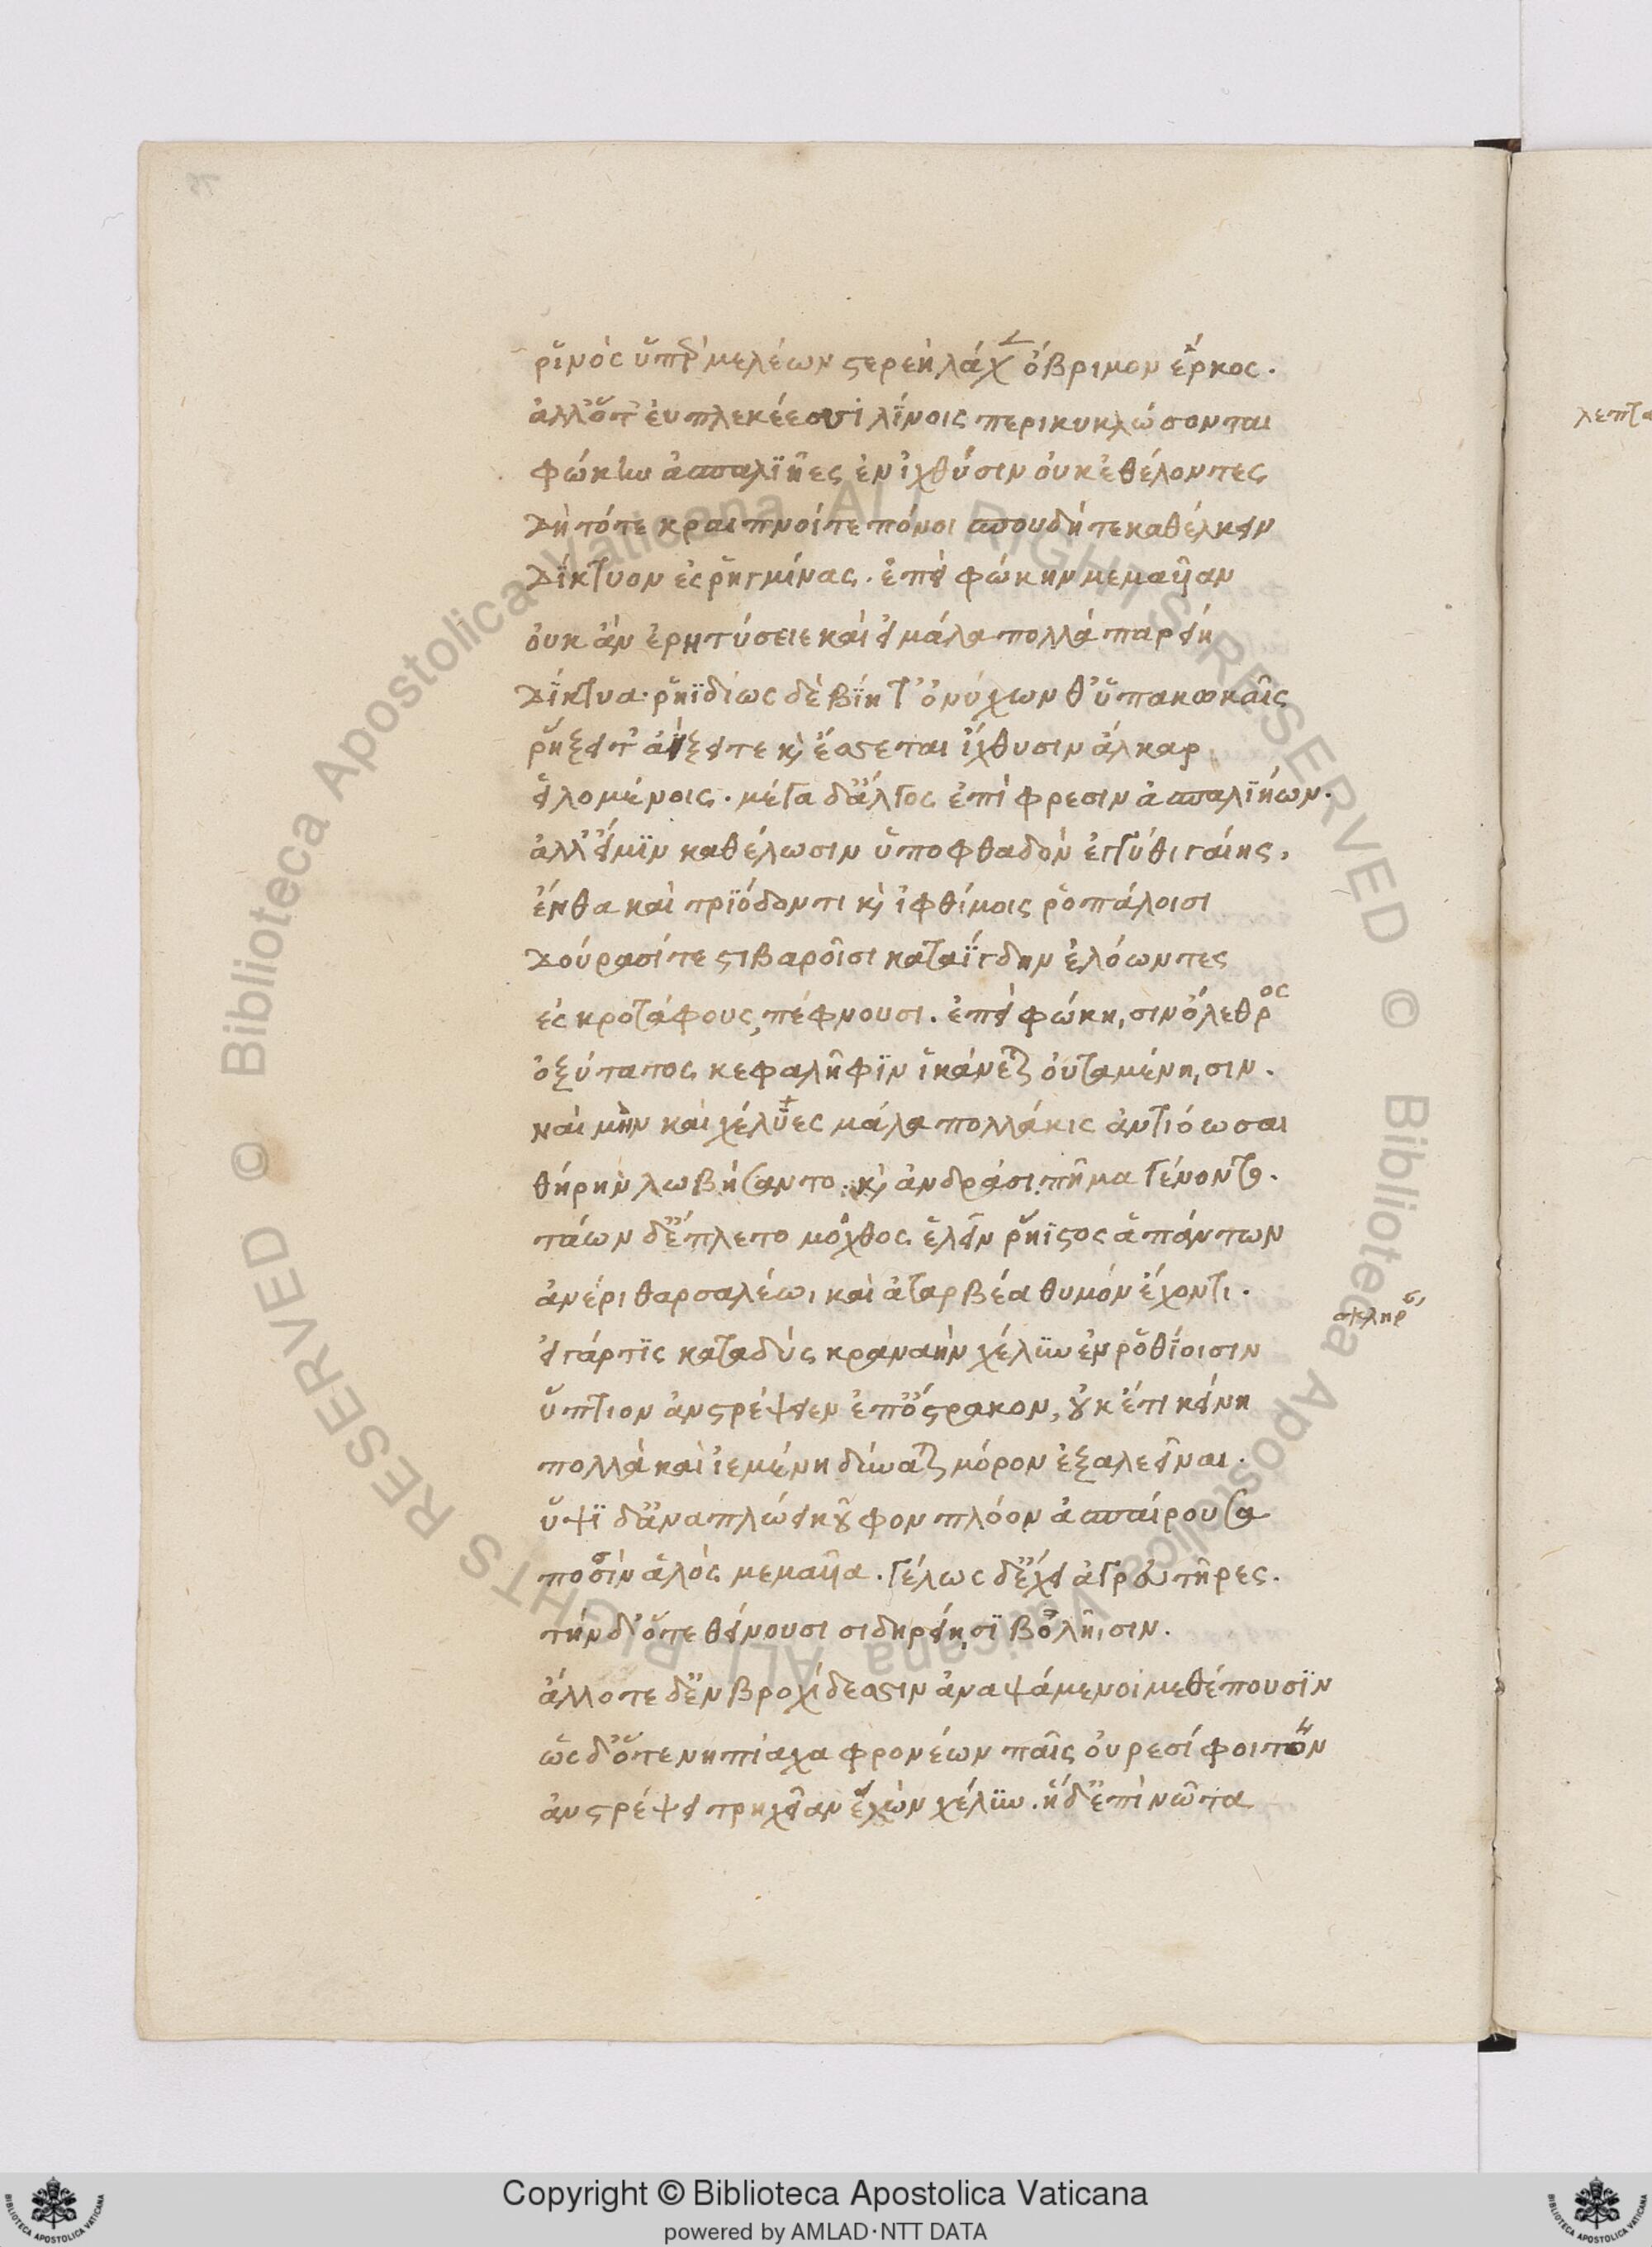 ῥινὸς ὑπὲρ μελέων στερεὴ λάχεν ὄβριμον ἕρκος.
ἀλλ' ὅτ' ἐυπλεκέεσσι λίνοις περικυκλώσονται
φώκην ἀσπαλιῆες ἐν ἰχθύσιν οὐκ ἐθέλοντες
δὴ τότε κραιπνοί τε πόνοι σπουδή τε καθέλκειν
δίκτυον ἐς ῥηγμῖνας. ἐπεὶ φώκην μεμαυῖαν
οὐκ ἂν ἐρητύσειε καὶ εἰ μάλα πολλὰ παρείη
δίκτυα. ῥηϊδίως δὲ βίῃ τ' ὀνύχων θ' ὑπ' ἀκωκαῖς
ῥήξει τ' ἀΐξει τε καὶ ἔσσεται ἰχθύσιν ἄλκαρ
εἰλομένοις. μέγα δ' ἄλγος ἐπὶ φρεσὶν ἀσπαλιήων.
ἀλλ' εἴ μιν καθέλωσιν ὑποφθαδὸν ἐγγύθι γαίης,
ἔνθα καὶ τριόδοντι καὶ ἰφθίμοις ῥοπάλοισι
δούρασί τε στιβαροῖσι καταΐγδην ἐλόωντες
ἐς κροτάφους, πέφνουσι. ἐπεὶ φώκῃσιν ὄλεθρος
ὀξύτατος κεφαλῆφιν ἱκάνεται οὐταμένῃσιν.
ναὶ μὴν καὶ χέλυες μάλα πολλάκις ἀντιόωσαι
θήρην λωβήσαντο. καὶ ἀνδράσι πῆμα γένοντο.
τάων δ' ἔπλετο μόχθος ἑλεῖν ῥήιστος ἁπάντων
ἀνέρι θαρσαλέωι καὶ ἀταρβέα θυμὸν ἔχοντι.
εἰ γάρ τις καταδὺς κραναὴν χέλυν ἐν ῥοθίοισιν
σκληρ
ὕπτιον ἀνστρέψειεν ἐπ' ὄστρακον, οὐκέτι κείνη
πολλὰ καὶ ἱεμένη δύναται μόρον ἐξαλεεῖναι.
ὕψι δ' ἀναπλώει κοῦφον πλόον ἀσπαίρουσα
ποσσὶν ἁλὸς μεμαυῖα. γέλως δ' ἔχει ἀγρευτῆρες.
τὴν δ' ὅτε θείνουσι σιδηρείῃσι βολῇσιν.
ἄλλοτε δ' ἐν βροχίδεσσιν ἀναψάμενοι μεθέπουσιν
ὡς δ' ὅτε νηπίαχα φρονέων παῖς οὔρεσι φοιτῶν
ἀνστρέψει τρηχεῖαν ἑλὼν χέλυν. ἡ δ' ἐπὶ νῶτα
λεπτ
Copyright © Biblioteca Apostolica Vaticana
powered by AMLAD·NTT DATA